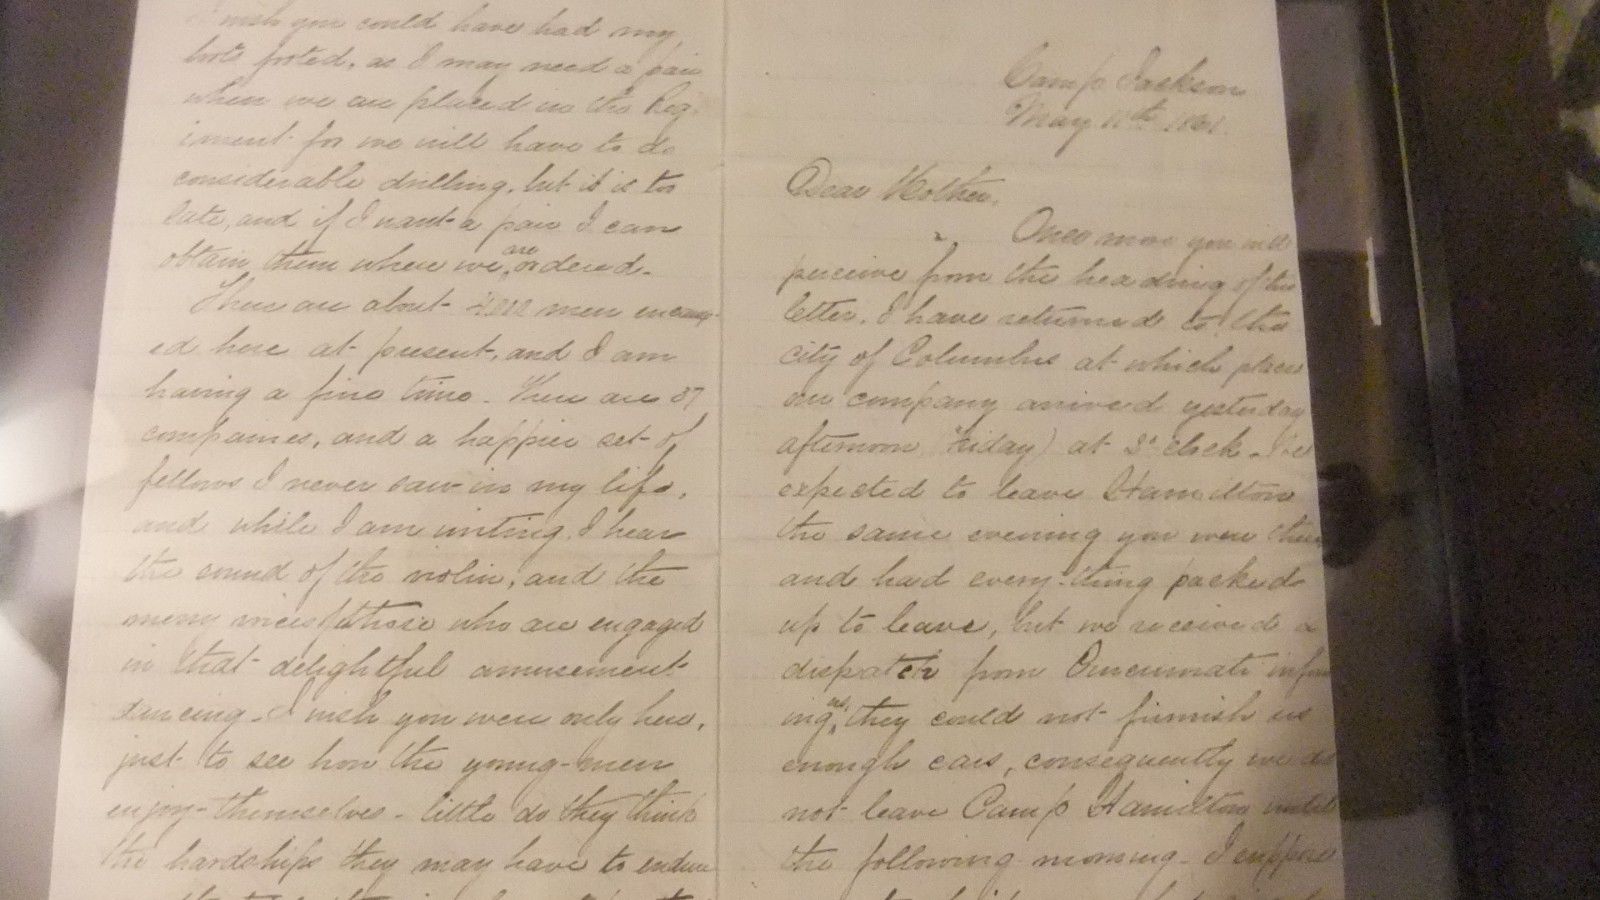 wish you could have had my
boots footed, as I may need a pair
when we are placed in the Reg-
iment for we will have to do
considerable drilling, but it is too
late, and if I want a pair I can
obtain them where we are ordered.
There are about men encamp-
ed here at present, and I am
having a fine time. There are 37
companies, and a happier set of
fellows I never saw in my life,
and while I am writing I hear
the sound of the violin, and the
merry voices of those who are engaged
in that delightful amusement
dancing. I wish you were only here,
just to see how the young-men
enjoy-themselves - little do they think
the hardships they may have to endure
Camp Jackson
May 11th 1861.
Dear Mother.
Once more you will
perceive from the heading of this
letter, I have returned to the
city of Columbus at which place
our company arrived yesterday
afternoon (Friday) at o'clock - We
expected to leave Hamilton
the same evening you were there
and had every-thing packed
up to leave, but we received a
dispatch from Cincinnati inform
ing us, they could not furnish us
enough cars, consequently we did
not leave Camp Hamilton until
the following morning - I suppose